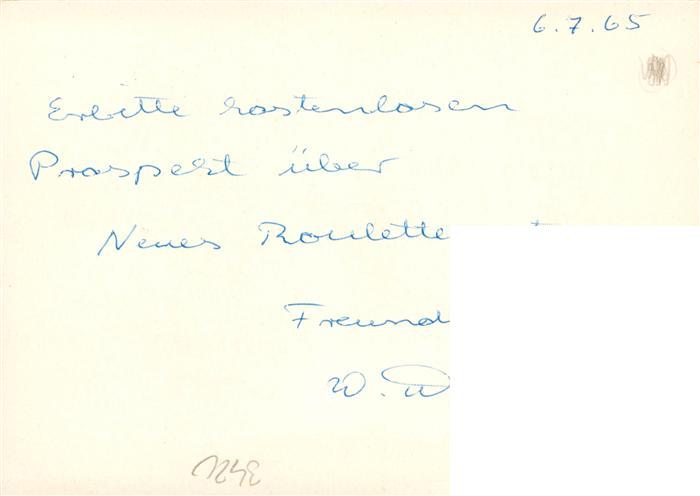 6.7.65
Erbitte kostenlosen
Prospekt über
Neues Roulette
Freund
W.